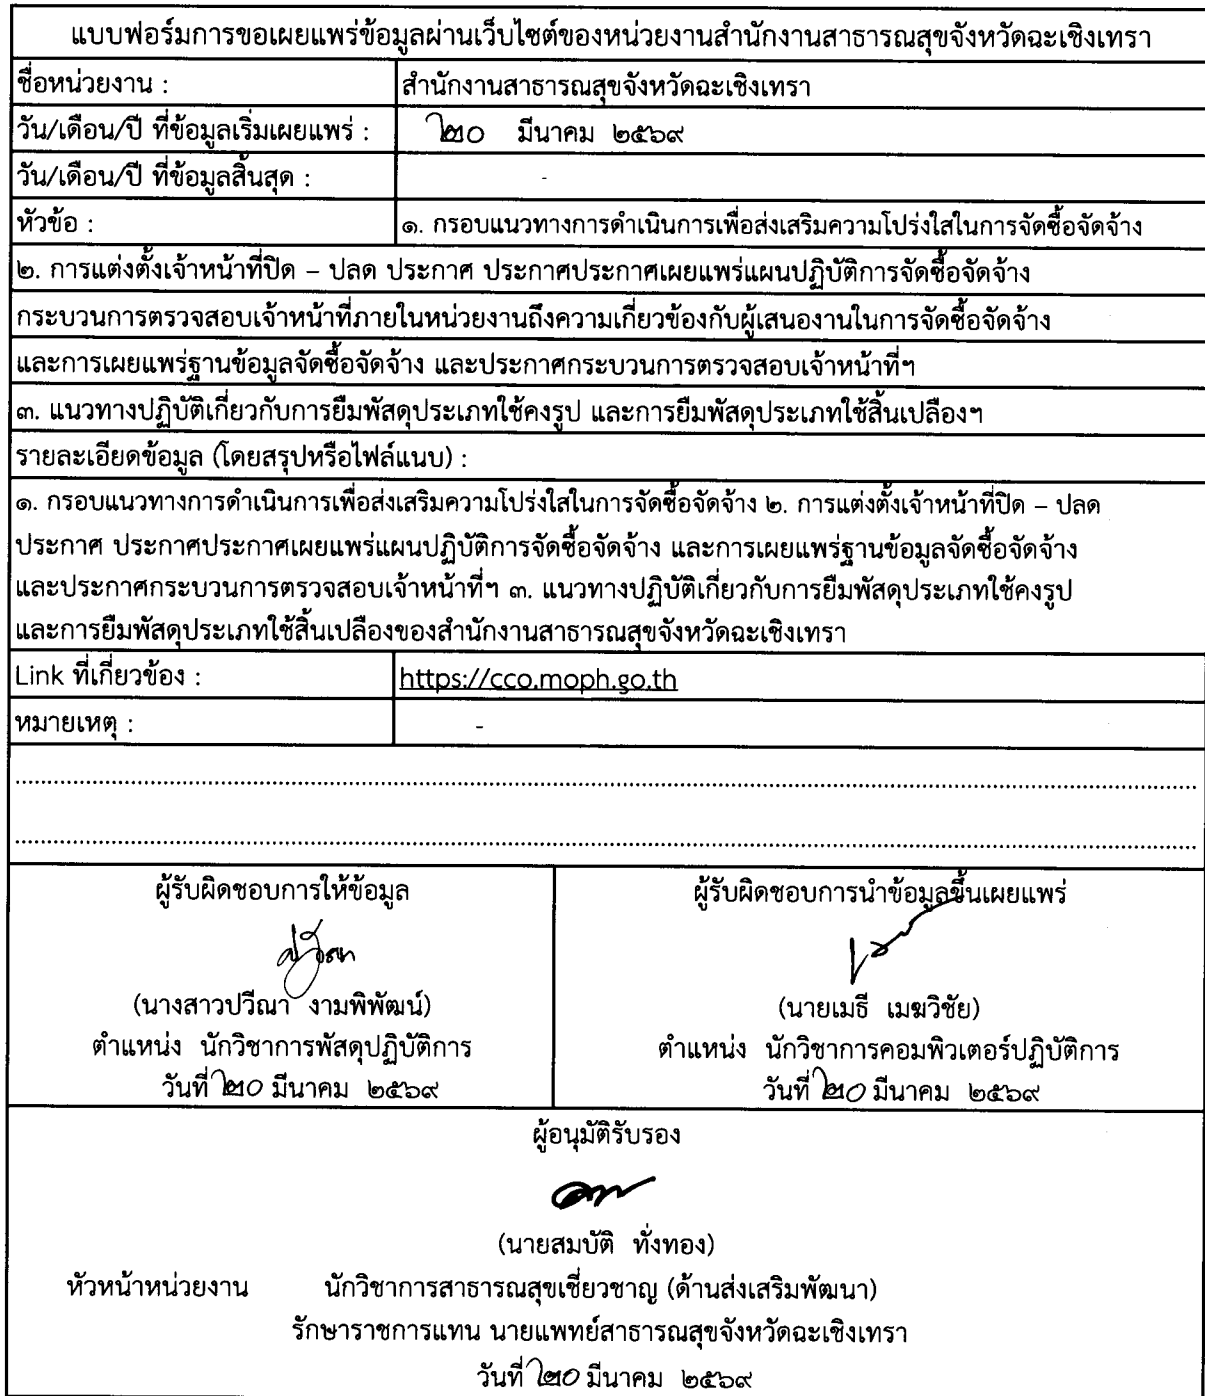 แบบฟอร์มการขอเผยแพร่ข้อมูลผ่านเว็บไซต์ของหน่วยงานสำนักงานสาธารณสุขจังหวัดฉะเชิงเทรา
ชื่อหน่วยงาน : สำนักงานสาธารณสุขจังหวัดฉะเชิงเทรา
วัน/เดือน/ปี ที่ข้อมูลเริ่มเผยแพร่ : ๒๐ มีนาคม ๒๕๖๙
วัน/เดือน/ปี ที่ข้อมูลสิ้นสุด : -
หัวข้อ : ๑. กรอบแนวทางการดำเนินการเพื่อส่งเสริมความโปร่งใสในการจัดซื้อจัดจ้าง
๒. การแต่งตั้งเจ้าหน้าที่ปิด – ปลด ประกาศ ประกาศประกาศเผยแพร่แผนปฏิบัติการจัดซื้อจัดจ้าง
กระบวนการตรวจสอบเจ้าหน้าที่ภายในหน่วยงานถึงความเกี่ยวข้องกับผู้เสนองานในการจัดซื้อจัดจ้าง
และการเผยแพร่ฐานข้อมูลจัดซื้อจัดจ้าง และประกาศกระบวนการตรวจสอบเจ้าหน้าที่ฯ
๓. แนวทางปฏิบัติเกี่ยวกับการยืมพัสดุประเภทใช้คงรูป และการยืมพัสดุประเภทใช้สิ้นเปลืองฯ
รายละเอียดข้อมูล (โดยสรุปหรือไฟล์แนบ) :
๑. กรอบแนวทางการดำเนินการเพื่อส่งเสริมความโปร่งใสในการจัดซื้อจัดจ้าง ๒. การแต่งตั้งเจ้าหน้าที่ปิด – ปลด
ประกาศ ประกาศประกาศเผยแพร่แผนปฏิบัติการจัดซื้อจัดจ้าง และการเผยแพร่ฐานข้อมูลจัดซื้อจัดจ้าง
และประกาศกระบวนการตรวจสอบเจ้าหน้าที่ฯ ๓. แนวทางปฏิบัติเกี่ยวกับการยืมพัสดุประเภทใช้คงรูป
และการยืมพัสดุประเภทใช้สิ้นเปลืองของสำนักงานสาธารณสุขจังหวัดฉะเชิงเทรา
Link ที่เกี่ยวข้อง : https://cco.moph.go.th
หมายเหตุ : -
ผู้รับผิดชอบการให้ข้อมูล
ปวีณา
(นางสาวปวีณา งามพิพัฒน์)
ตำแหน่ง นักวิชาการพัสดุปฏิบัติการ
วันที่ ๒๐ มีนาคม ๒๕๖๙
ผู้รับผิดชอบการนำข้อมูลขึ้นเผยแพร่
(นายเมธี เมฆวิชัย)
ตำแหน่ง นักวิชาการคอมพิวเตอร์ปฏิบัติการ
วันที่ ๒๐ มีนาคม ๒๕๖๙
ผู้อนุมัติรับรอง
(นายสมบัติ ทั่งทอง)
หัวหน้าหน่วยงาน นักวิชาการสาธารณสุขเชี่ยวชาญ (ด้านส่งเสริมพัฒนา)
รักษาราชการแทน นายแพทย์สาธารณสุขจังหวัดฉะเชิงเทรา
วันที่ ๒๐ มีนาคม ๒๕๖๙